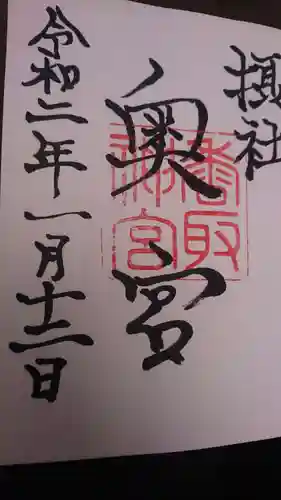 摂社
奥宮
香取神宮
令和二年一月十二日